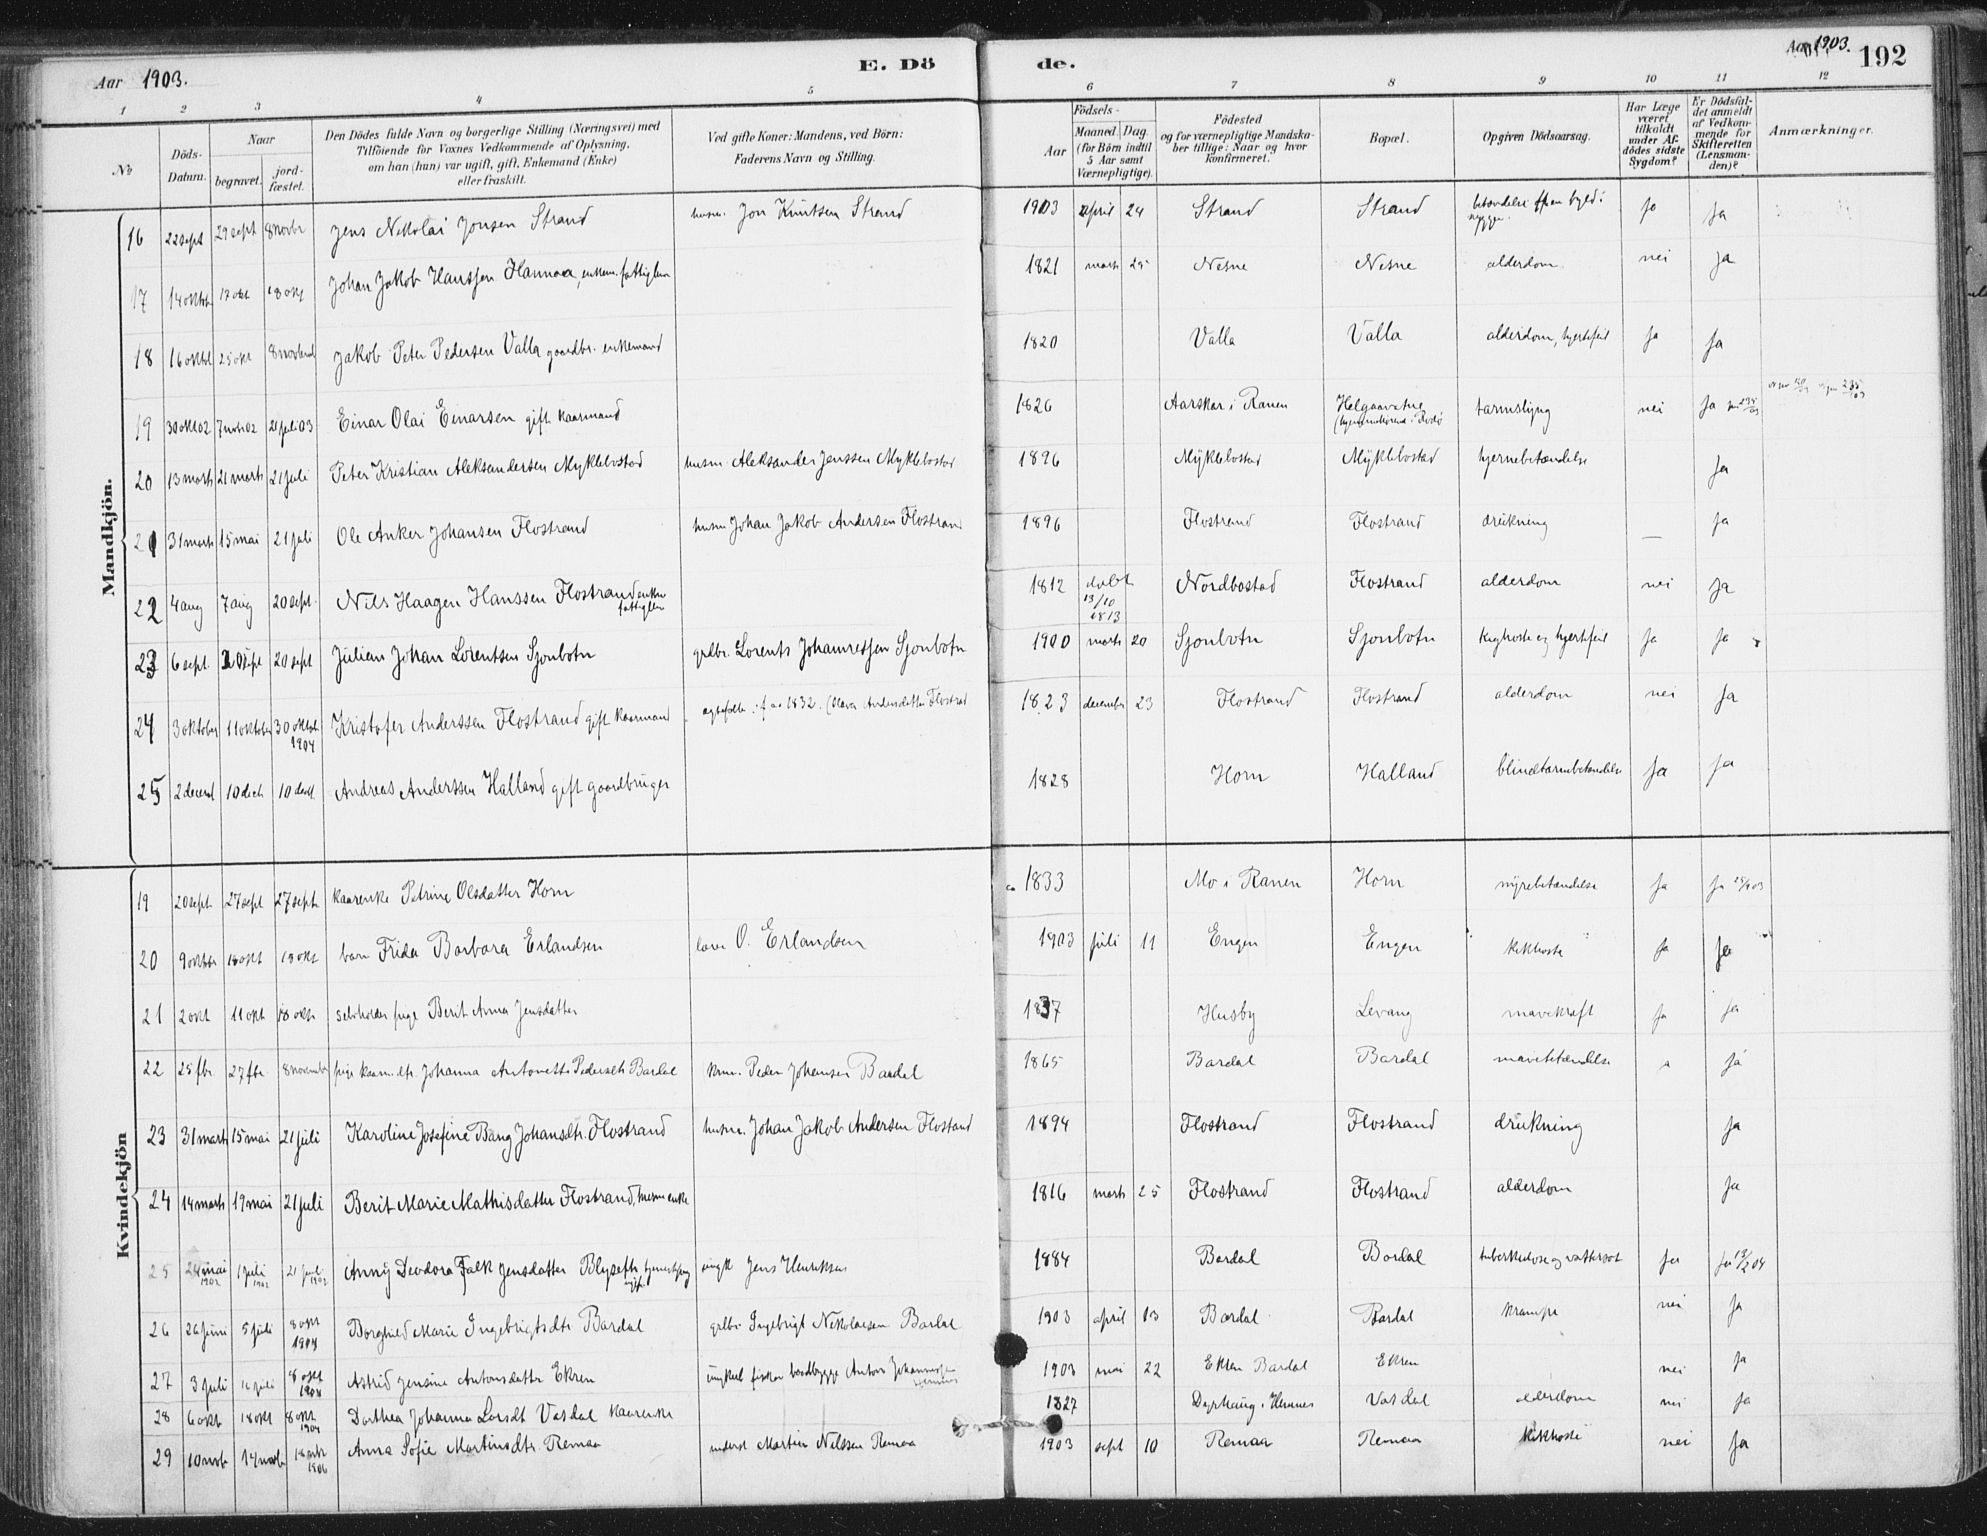 Aar 1903.
E. Dö
de.
Aar 1903.
192
1 2 3 4 5 6 7 8 9 10 11 12
No
Döds-Datum.
Naar
begravet.
jord-fæstet.
Den Dödes fulde Navn og borgerlige Stilling (Næringsvei) med
Tilföiende for Voxnes Vedkommende af Oplysning,
om han (hun) var ugift, gift, Enkemand (Enke)
eller fraskilt.
Ved gifte Koner: Mandens, ved Börn:
Faderens Navn og Stilling.
Födsels-
Aar
Maaned. Dag.
(for Börn indtil
5 Aar samt
Værnepligtige).
Födested
og for værnepligtige Mandska-
ber tillige: Naar og hvor
konfirmeret.
Bopæl.
Opgiven Dödsaarsag.
Har Læge
været
tilkaldt
under Af-
dödes sidste
Sygdom?
Er Dödsfal-
det anmeldt
af Vedkom-
mende for
Skifteretten
(Lensman-
den)?
Anmærkninger.
Mandkjön.
16 22 sept 29 sept 8 novbr Jens Nikolai Jonsen Strand husm. Jon Knutsen Strand 1903 april 24 Strand Strand ja ja
17 14 oktbr 17 okt 18 okt Johan Jakob Hanssen Hannaa, enkem. fattiglem 1821 marts 25 Nesne Nesne alderdom. nei ja
18 16 oktbr 25 okt 8 novbr Jakob Peter Pedersen Valla gaardbr. enkemand 1820 Valla Valla alderdom, hjertefeil ja ja
19 30 okt 02 7 nov 02 21 juli 03 Einar Olai Einarsen gift kaarmand 1826 Aarskar i Ranen tarmslyng nei ja
20 13 marts 21 marts 21 juli Peter Kristian Aleksandersen Myklebostad husm. Aleksander Jenssen Myklebostad 1896 Myklebostad Myklebostad hjernebetændelse ja
21 31 marts 15 mai 21 juli Ole Anker Johansen Flostrand husm Johan Jakob Andersen Flostrand 1896 Flostrand Flostrand drukning — ja
22 4 aug 7 aug 20 sept. Nils Haagen Hanssen Flostrand enkm fattiglem 1812 døbt 13/10 1813 Nordbostad Flostrand alderdom nei ja
23 6 sept. 20 sept 20 sept Julian Johan Lorentsen Sjonbotn grdbr. Lorents Johannessen Sjonbotn 1900 marts 20 Sjonbotn Sjonbotn kighoste og hjertefeil ja ja
24 3 oktober 11 oktober 30 oktbr 1904 Kristofer Anderssen Flostrand gift kaarmand 1823 december 23 Flostrand Flostrand alderdom nei ja
25 2 decembr 10 decb 10 decb Andreas Anderssen Halland gift gaardbruger 1828 Horn Halland blindtarmbetændelse ja ja
Kvindekjön
19 20 sept. 27 sept 27 sept kaarenke Petrine Olsdatter Horn ca 1833 Mo i Ranen Horn nyrebetændelse ja
20 9 oktbr 18 okt 18 okt barn Frida Barbara Erlandsen O. Erlandsen 1903 juli 11 Engen Engen kikhoste ja ja
21 2 okt 11 okt 18 okt selvholder pige Berit Anna Jensdatter 1837 Husby Levang mavekræft ja ja
22 25 fbr. 27 fbr. 8 november pige kaarm.dtr. Johanna Antonette Pedersdtr Bardal krm. Peder Johansen Bardal 1865 Bardal Bardal mavebetændelse ja
23 31 marts 15 mai 21 juli Karoline Josefine Bang Johansdtr. Flostrand husm. Johan Jakob Andersen Flostrand 1894 Flostrand Flostrand drukning ja
24 14 marts 19 mai 21 juli Berit Marie Mathisdatter Flostrand, husmenke 1816 marts 25 Flostrand Flostrand alderdom ja
25 24 mai 1902 1 juli 1902 21 juli 1902 Anny Deodora Falk Jensdatter ungk Jens Henriksen 1884 Bardal Bardal tuberkulose og vattersot ja ja 13/2 04
26 26 juni 5 juli 8 okt 1904 Borghild Marie Ingebrigtsdtr Bardal grdbr Ingebrigt Nikolaisen Bardal 1903 april 13 Bardal Bardal krampe nei ja
27 3 juli 8 okt 1904 Astrid Jensine Antonsdatter Ekren ungkarl fisker Anton Johannessen 1903 mai 22 Ekren Bardal Ekren nei ja
28 6 okt 18 okt 8 okt 1904 Dorthea Johanna Larsdt Vasdal kaarenke 1827 Dyrhaug i Hemnes Vasdal alderdom nei ja
29 10 novb 14 novb 1906 Anna Sofie Martinsdtr Remaa inderst Martin Nilssen Remaa 1903 sept 10 Remaa Remaa kikhoste nei ja